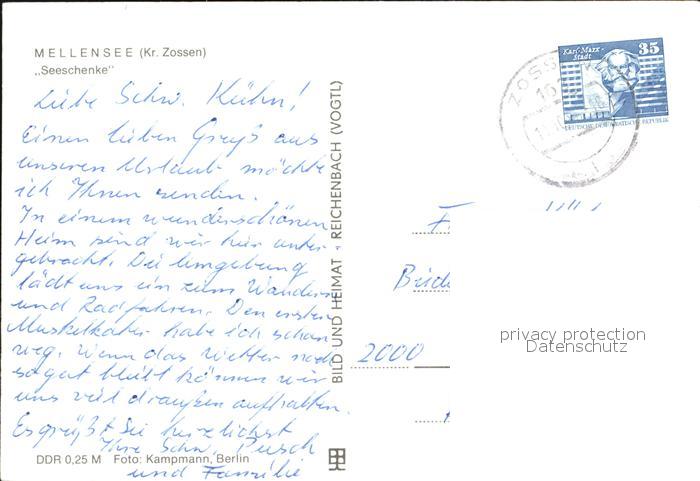 MELLENSEE (Kr. Zossen)
„Seeschenke"
Liebe Schw. Kühn!
Einen lieben Gruß aus
unserem Urlaub möchte
ich Ihnen senden.
In einem wunderschönen
Heim sind wir hier unter-
gebracht. Die Umgebung
lädt uns ein zum Wandern
und Radfahren. Den ersten
Muskelkater habe ich schon
weg. Wenn das Wetter noch
so gut bleibt können wir
uns viel draußen aufhalten.
Es grüßt Sie herzlichst
Ihre Schw. Pusch
und Familie
DDR 0,25 M Foto: Kampmann, Berlin
BILD UND HEIMAT REICHENBACH (VOGTL)
Karl-Marx-
Stadt
35
DEUTSCHE DEMOKRATISCHE REPUBLIK
ZOSS
2000
privacy protection
Datenschutz